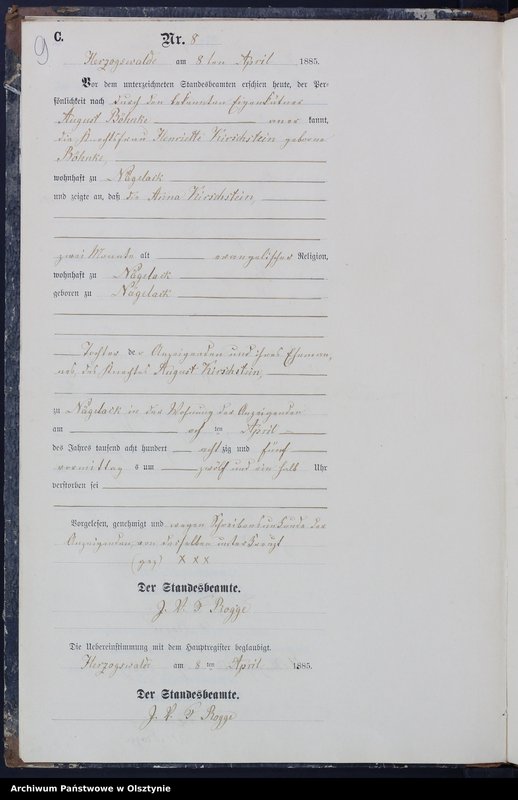 9
C.
Nr. 8
Herzogswalde am 8 ten April 1885.
Vor dem unterzeichneten Standesbeamten erschien heute, der Per-
sönlichkeit nach durch den bekannten Eigenkätner
August Böhnke aner kannt,
die Knechtsfrau Henriette Kirschstein geborene
Böhnke,
wohnhaft zu Nägelack
und zeigte an, daß die Anna Kirschstein,
zwei Monate alt evangelischer Religion,
wohnhaft zu Nägelack
geboren zu Nägelack
Tochter der Anzeigenden und ihres Eheman,
nes, des Knechtes August Kirschstein,
zu Nägelack in der Wohnung der Anzeigenden
am ten April
des Jahres tausend acht hundert acht zig und fünf
vormittag s um zwölf und ein halb Uhr
verstorben sei
Vorgelesen, genehmigt und wegen Schreibensunkunde der
Anzeigenden, von derselben unterkreuzt
(gez) X X X
Der Standesbeamte.
J. V. Rogge
Die Uebereinstimmung mit dem Hauptregister beglaubigt.
Herzogswalde am 8 ten April 1885.
Der Standesbeamte.
J. V. Rogge
Archiwum Państwowe w Olsztynie